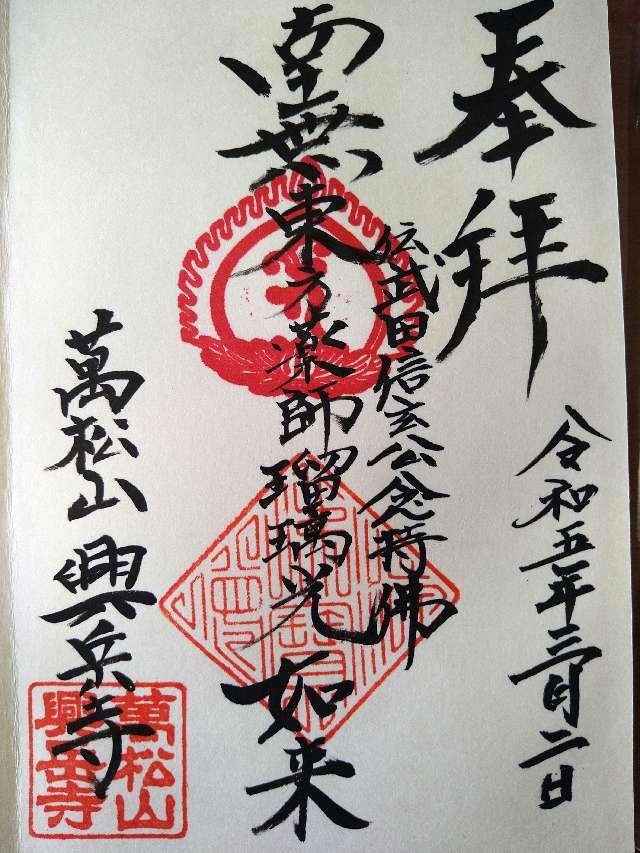 奉拝
令和五年三月二日
伝武田信玄公念持佛
南無東方薬師瑠璃光如来
萬松山 興岳寺
萬松山
興岳寺